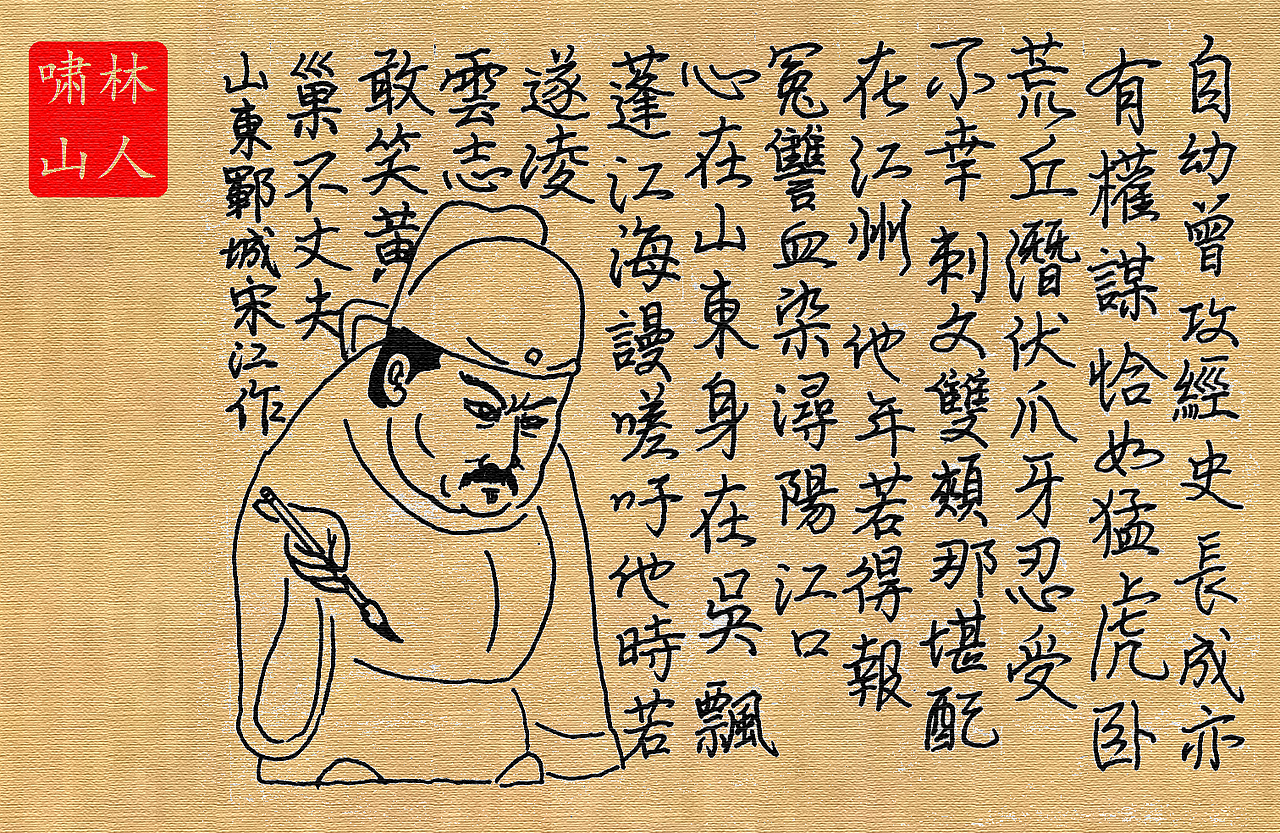 自幼曾攻經史長成亦
有權謀恰如猛虎卧
荒丘潛伏爪牙忍受
不幸刺文雙頰那堪配
在江州他年若得報
冤讐血染潯陽江口
心在山東身在吳飄
蓬江海謾嗟吁他時若
遂凌
雲志
敢笑黄
巢不丈夫
山東鄆城宋江作
林人
啸山